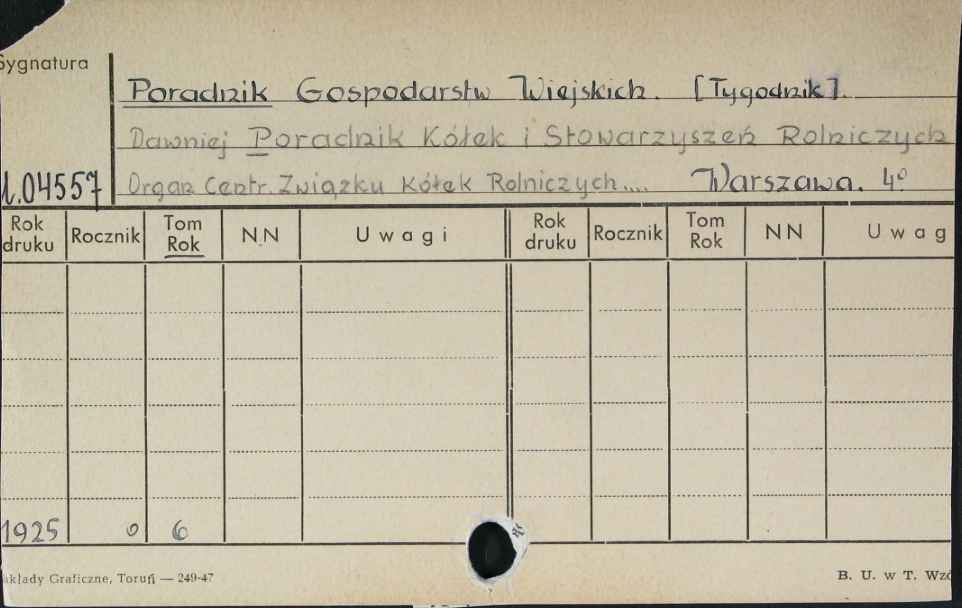 Sygnatura
Poradnik Gospodarstw Wiejskich. [Tygodnik].
Dawniej Poradnik Kółek i Stowarzyszeń Rolniczych
04557 Organ Centr. Związku Kółek Rolniczych.... Warszawa. 4º
Rok druku Rocznik Tom Rok NN Uwagi Rok druku Rocznik Tom Rok NN Uwag
1925 0 6
akłady Graficzne, Toruń — 249-47 B. U. w T. Wzó